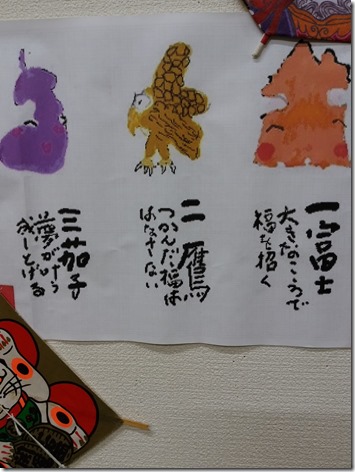 一富士
大きなこころで
福を招く
二鷹
つかんだ福は
はなさない
三茄子
夢が叶う
成しとげる